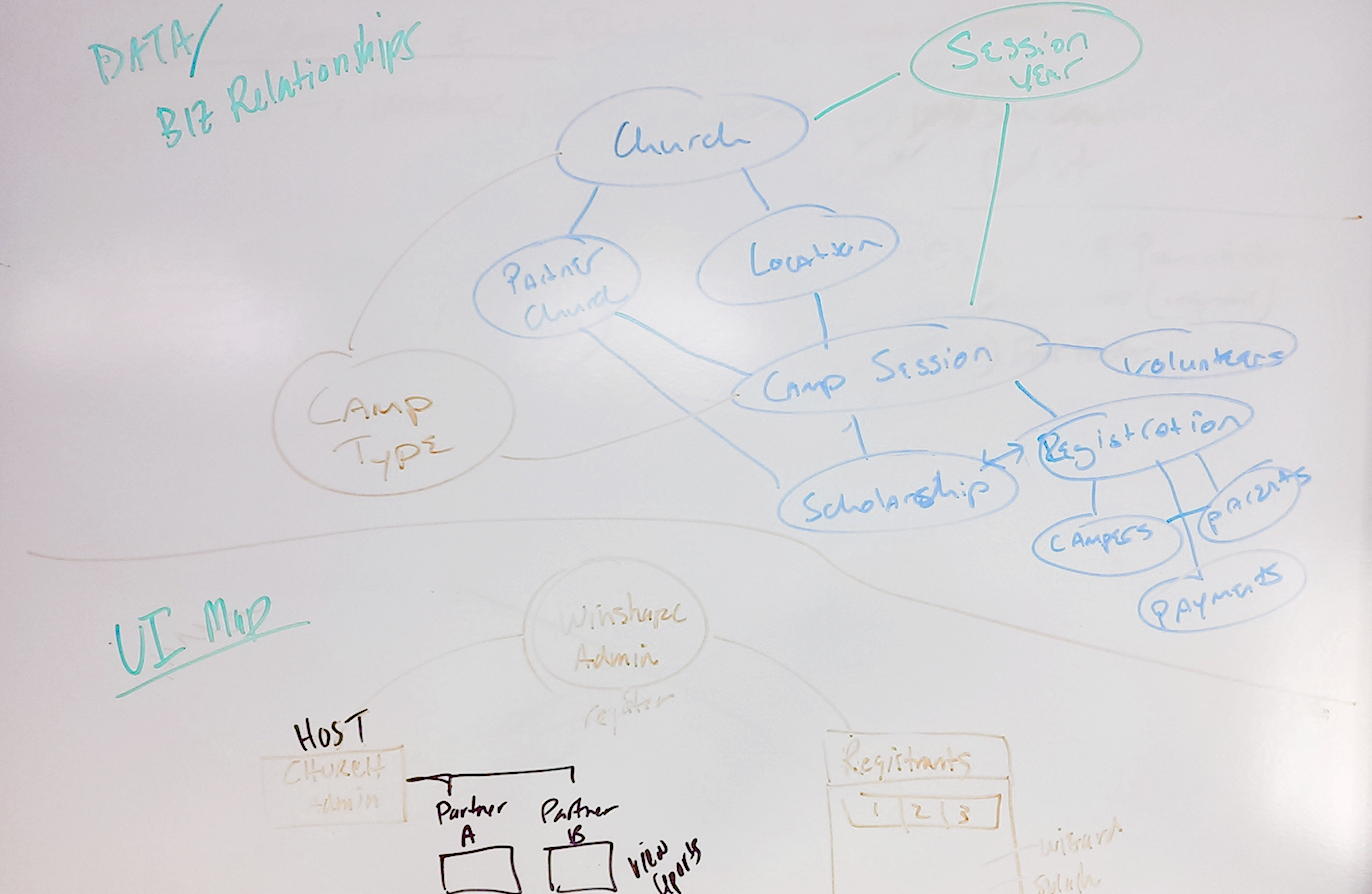 DATA/
BIZ Relationships
Session
Year
Church
Partner
Church
Location
Camp Session
Volunteers
CAMP
TYPE
Registration
Scholarship
CAMPERS
PARENTS
PAYMENTS
UI Map
Winshape
Admin
register
HOST
CHURCH
Admin
Partner
A
Partner
B
View
Registrants
1 2 3
wizard